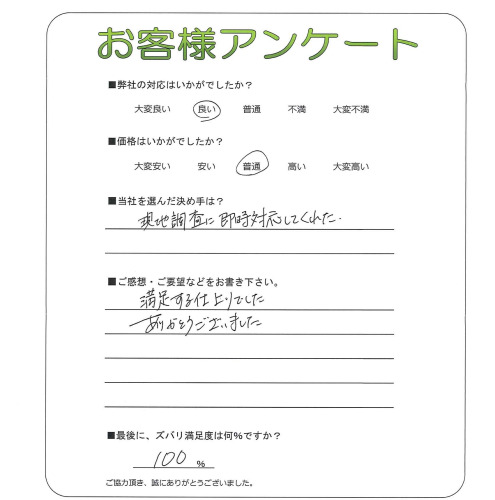 お客様アンケート
■弊社の対応はいかがでしたか？
大変良い 良い 普通 不満 大変不満
■価格はいかがでしたか？
大変安い 安い 普通 高い 大変高い
■当社を選んだ決め手は？
現地調査に即時対応してくれた.
■ご感想・ご要望などをお書き下さい。
満足する仕上りでした
ありがとうございました
■最後に、ズバリ満足度は何%ですか？
100 %
ご協力頂き、誠にありがとうございました。